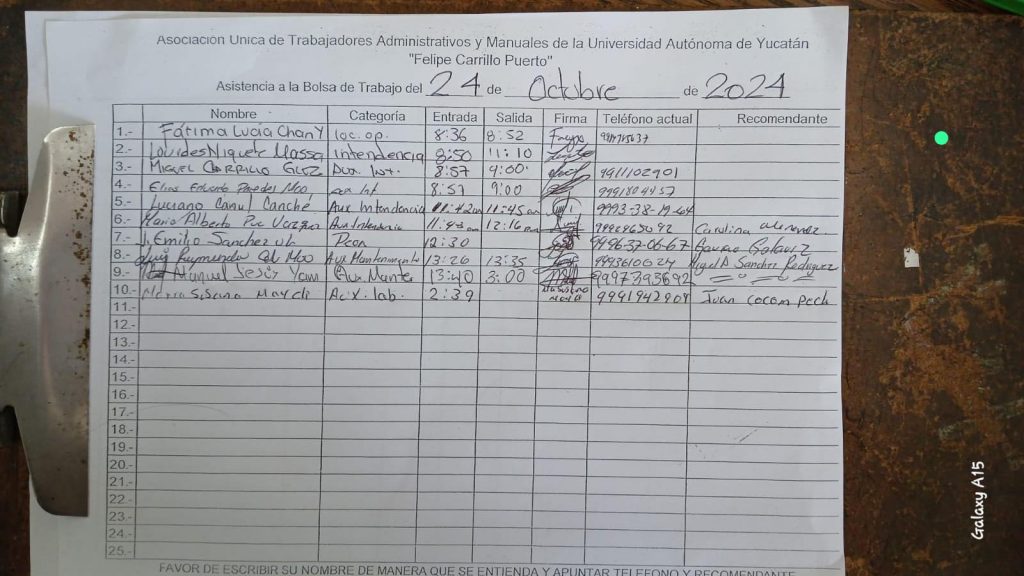 Asociación Unica de Trabajadores Administrativos y Manuales de la Universidad Autónoma de Yucatán
"Felipe Carrillo Puerto"
Asistencia a la Bolsa de Trabajo del 24 de Octubre de 2024
Nombre Categoría Entrada Salida Firma Teléfono actual Recomendante
1.- Fátima Lucía Chan Y 8:36 8:52
2.- Lourdes Massa Intendencia 8:50 11:10
3.- Miguel Carrillo Aux. Int. 8:57 9:00 9911102901
4.- Elias Eduardo Paredes Moo, aux Int 8:57 9:00 9991804457
5.- Luciano Canul Canché Aux. Intendencia 11:42am 11:45am 9993-38-19-64
6.- Mario Alberto Puc Aux Intendencia 12:16 Carolina
7.- Emilio Sanchez Peon 12:30 9996-37-06-67
8.- Luis Raymundo Moo Aux Mantenimiento 13:26 13:35 9993610024 Angel A Sanchez Rodriguez
9.- Manuel Jesús Yam Aux. Mante 13:40 3:00 9997393692
10.- Maria Susana May Aux. lab. 2:39 9991942908 Juan Cocom Pech
11.-
12.-
13.-
14.-
15.-
16.-
17.-
18.-
19.-
20.-
21.-
22.-
23.-
24.-
25.-
FAVOR DE ESCRIBIR SU NOMBRE DE MANERA QUE SE ENTIENDA Y APUNTAR TELEFONO Y RECOMENDANTE
Galaxy A15